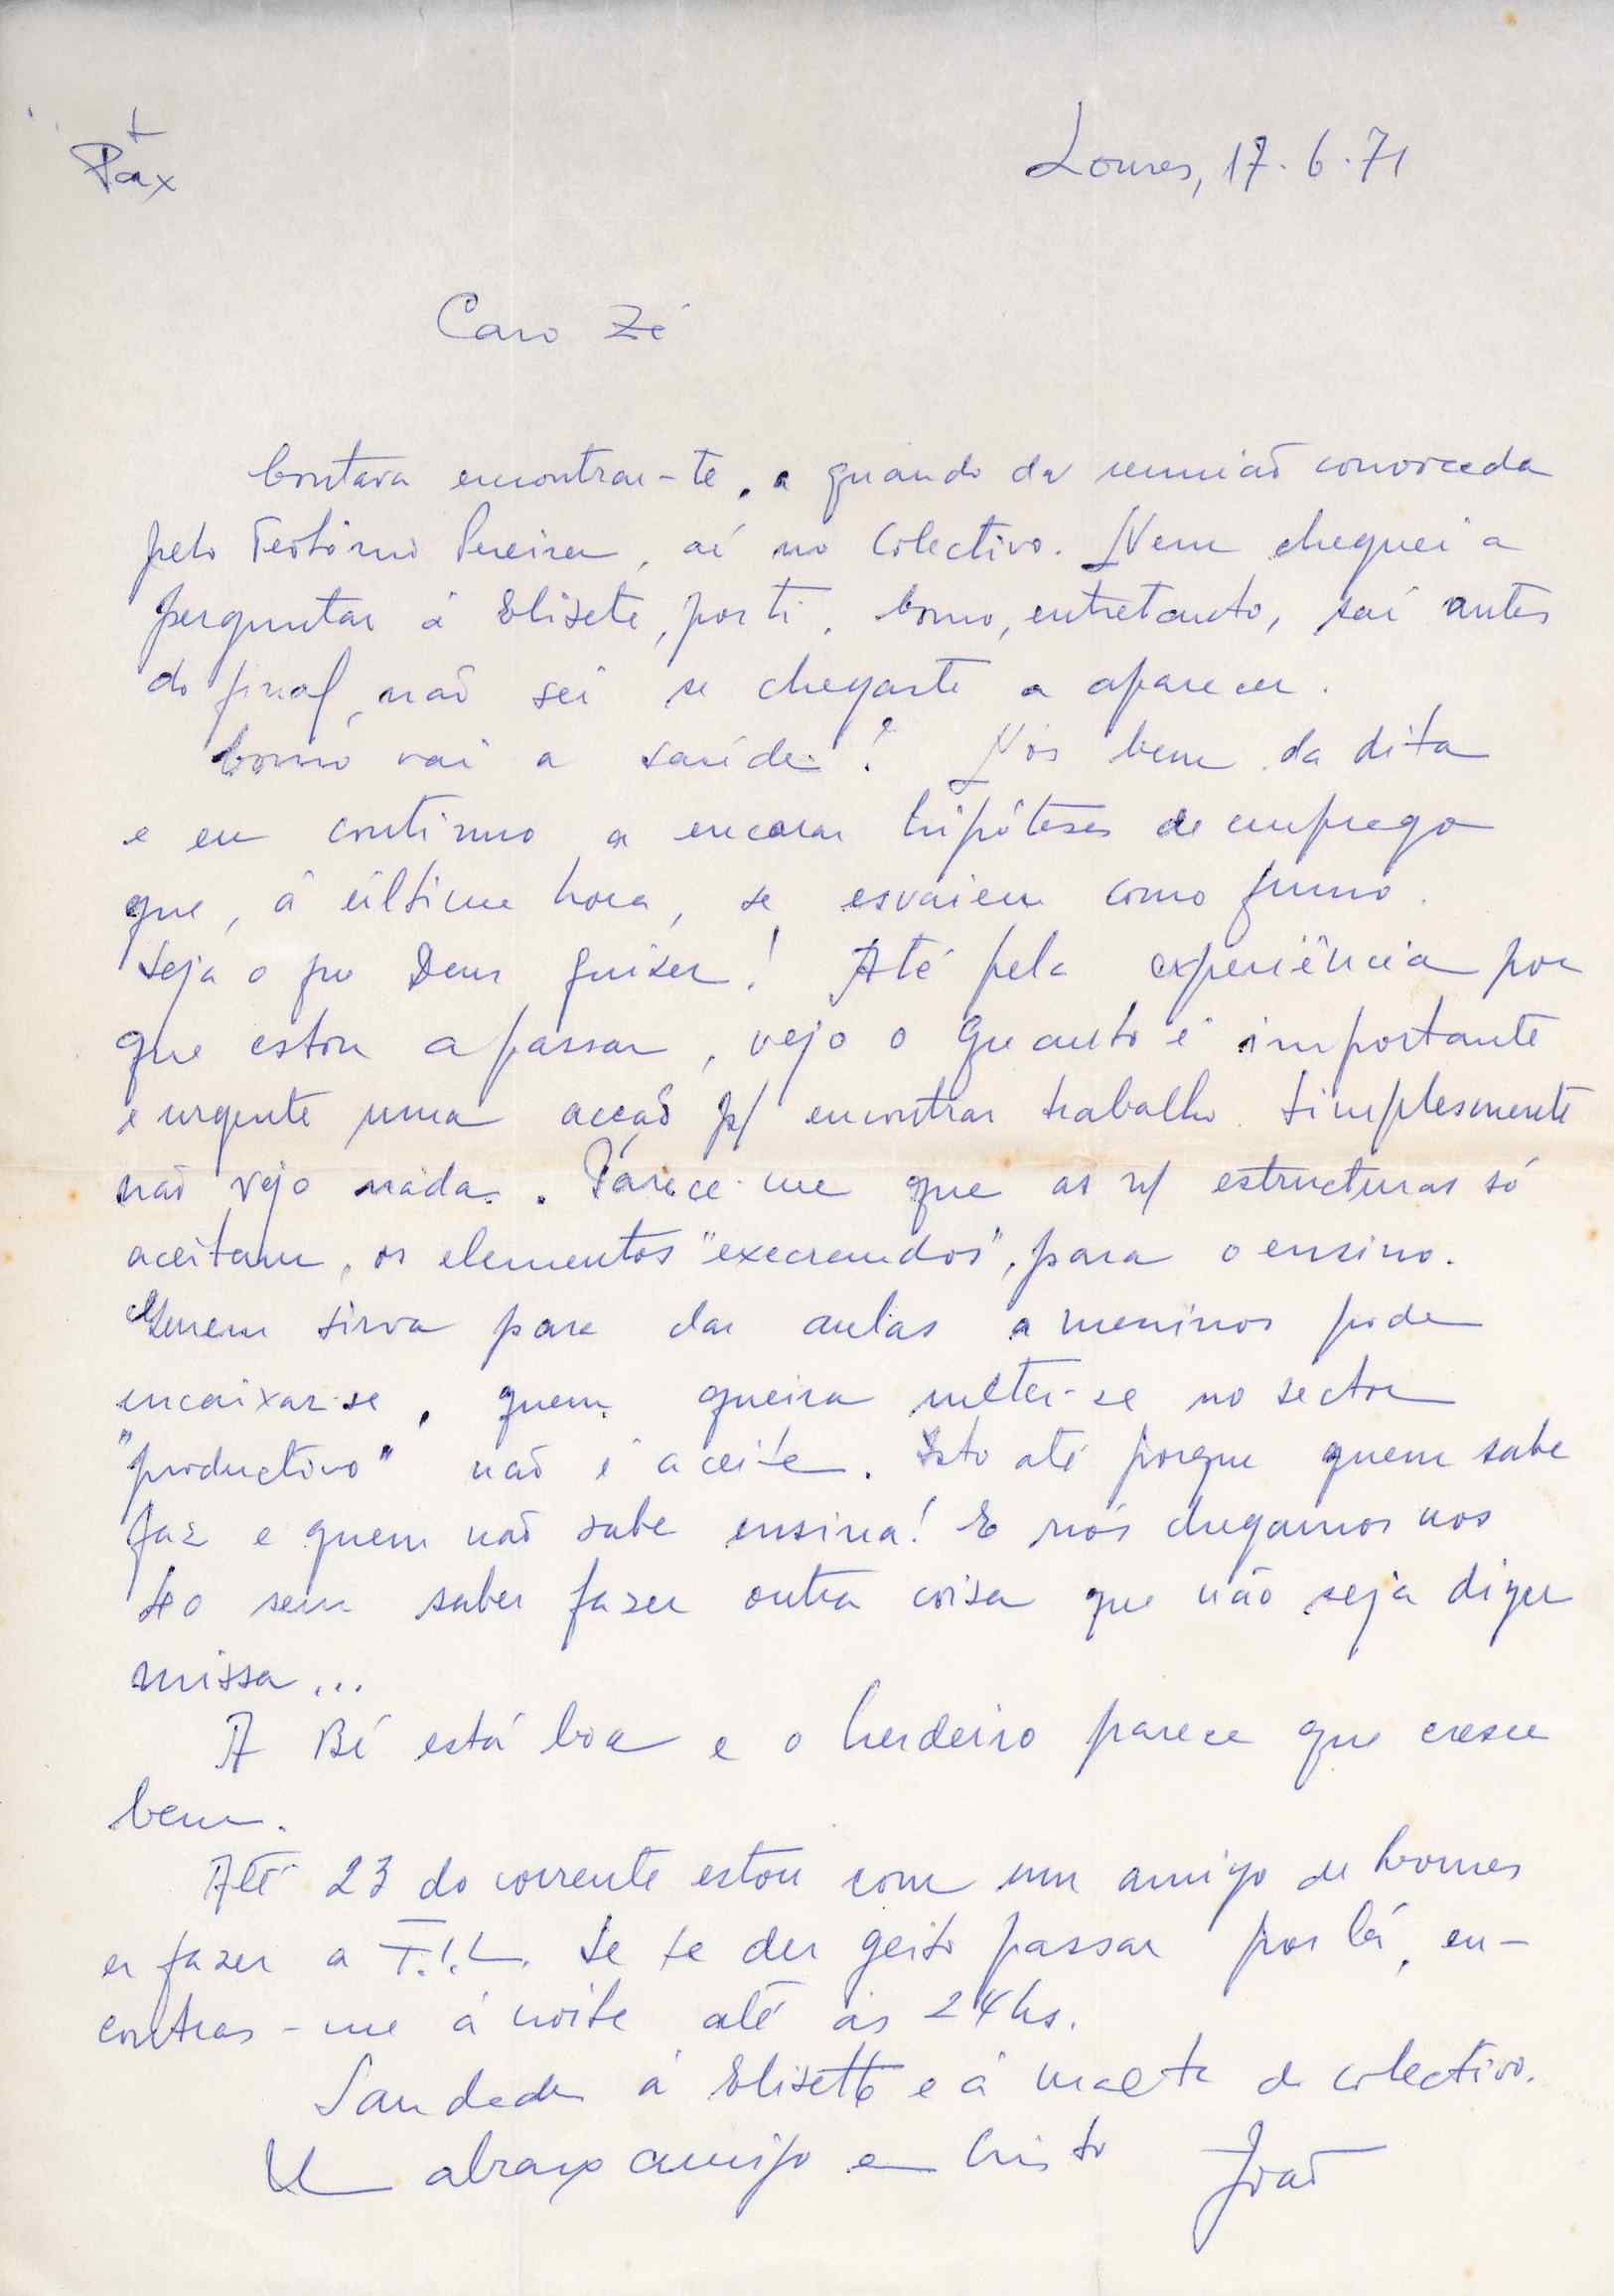 +
Pax
Loures, 17.6.71
Caro Zé
Contava encontrar-te, a quando da reunião convocada
pelo Teotónio Pereira, aí no Colectivo. Nem cheguei a
perguntar à Elisete, por ti. Como, entretanto, saí antes
do final, não sei se chegaste a aparecer.
Como vai a saúde? Nós bem da dita
e eu continuo a encarar hipóteses de emprego
que, à última hora, se esvaiem como fumo.
Seja o que Deus quiser! Até pela experiência por
que estou a passar, vejo o quanto é importante
e urgente uma acção p/ encontrar trabalho. Simplesmente
não vejo nada. Parece-me que as n/ estructuras só
aceitam, os elementos "execrandos", para o ensino.
Quem sirva para dar aulas a meninos pode
encaixar-se, quem queira meter-se no sector
"productivo" não é aceite. Isto até porque quem sabe
faz e quem não sabe ensina! E nós chegamos aos
40 sem saber fazer outra coisa que não seja dizer
missa...
A Bé está boa e o herdeiro parece que cresce
bem.
Até 23 do corrente estou com um amigo de Loures
a fazer a F.I.L. Se te der geito passar por lá, en-
contras-me à noite até às 24hs.
Saudades à Elisette e à malta do colectivo.
Um abraço amigo em Cristo João